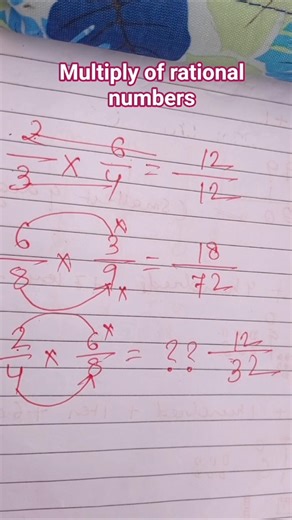 Multiply of rational
numbers
2/3 × 6/4 = 12/12
6/8 × 3/9 = 18/72
2/4 × 6/8 = ?? 12/32